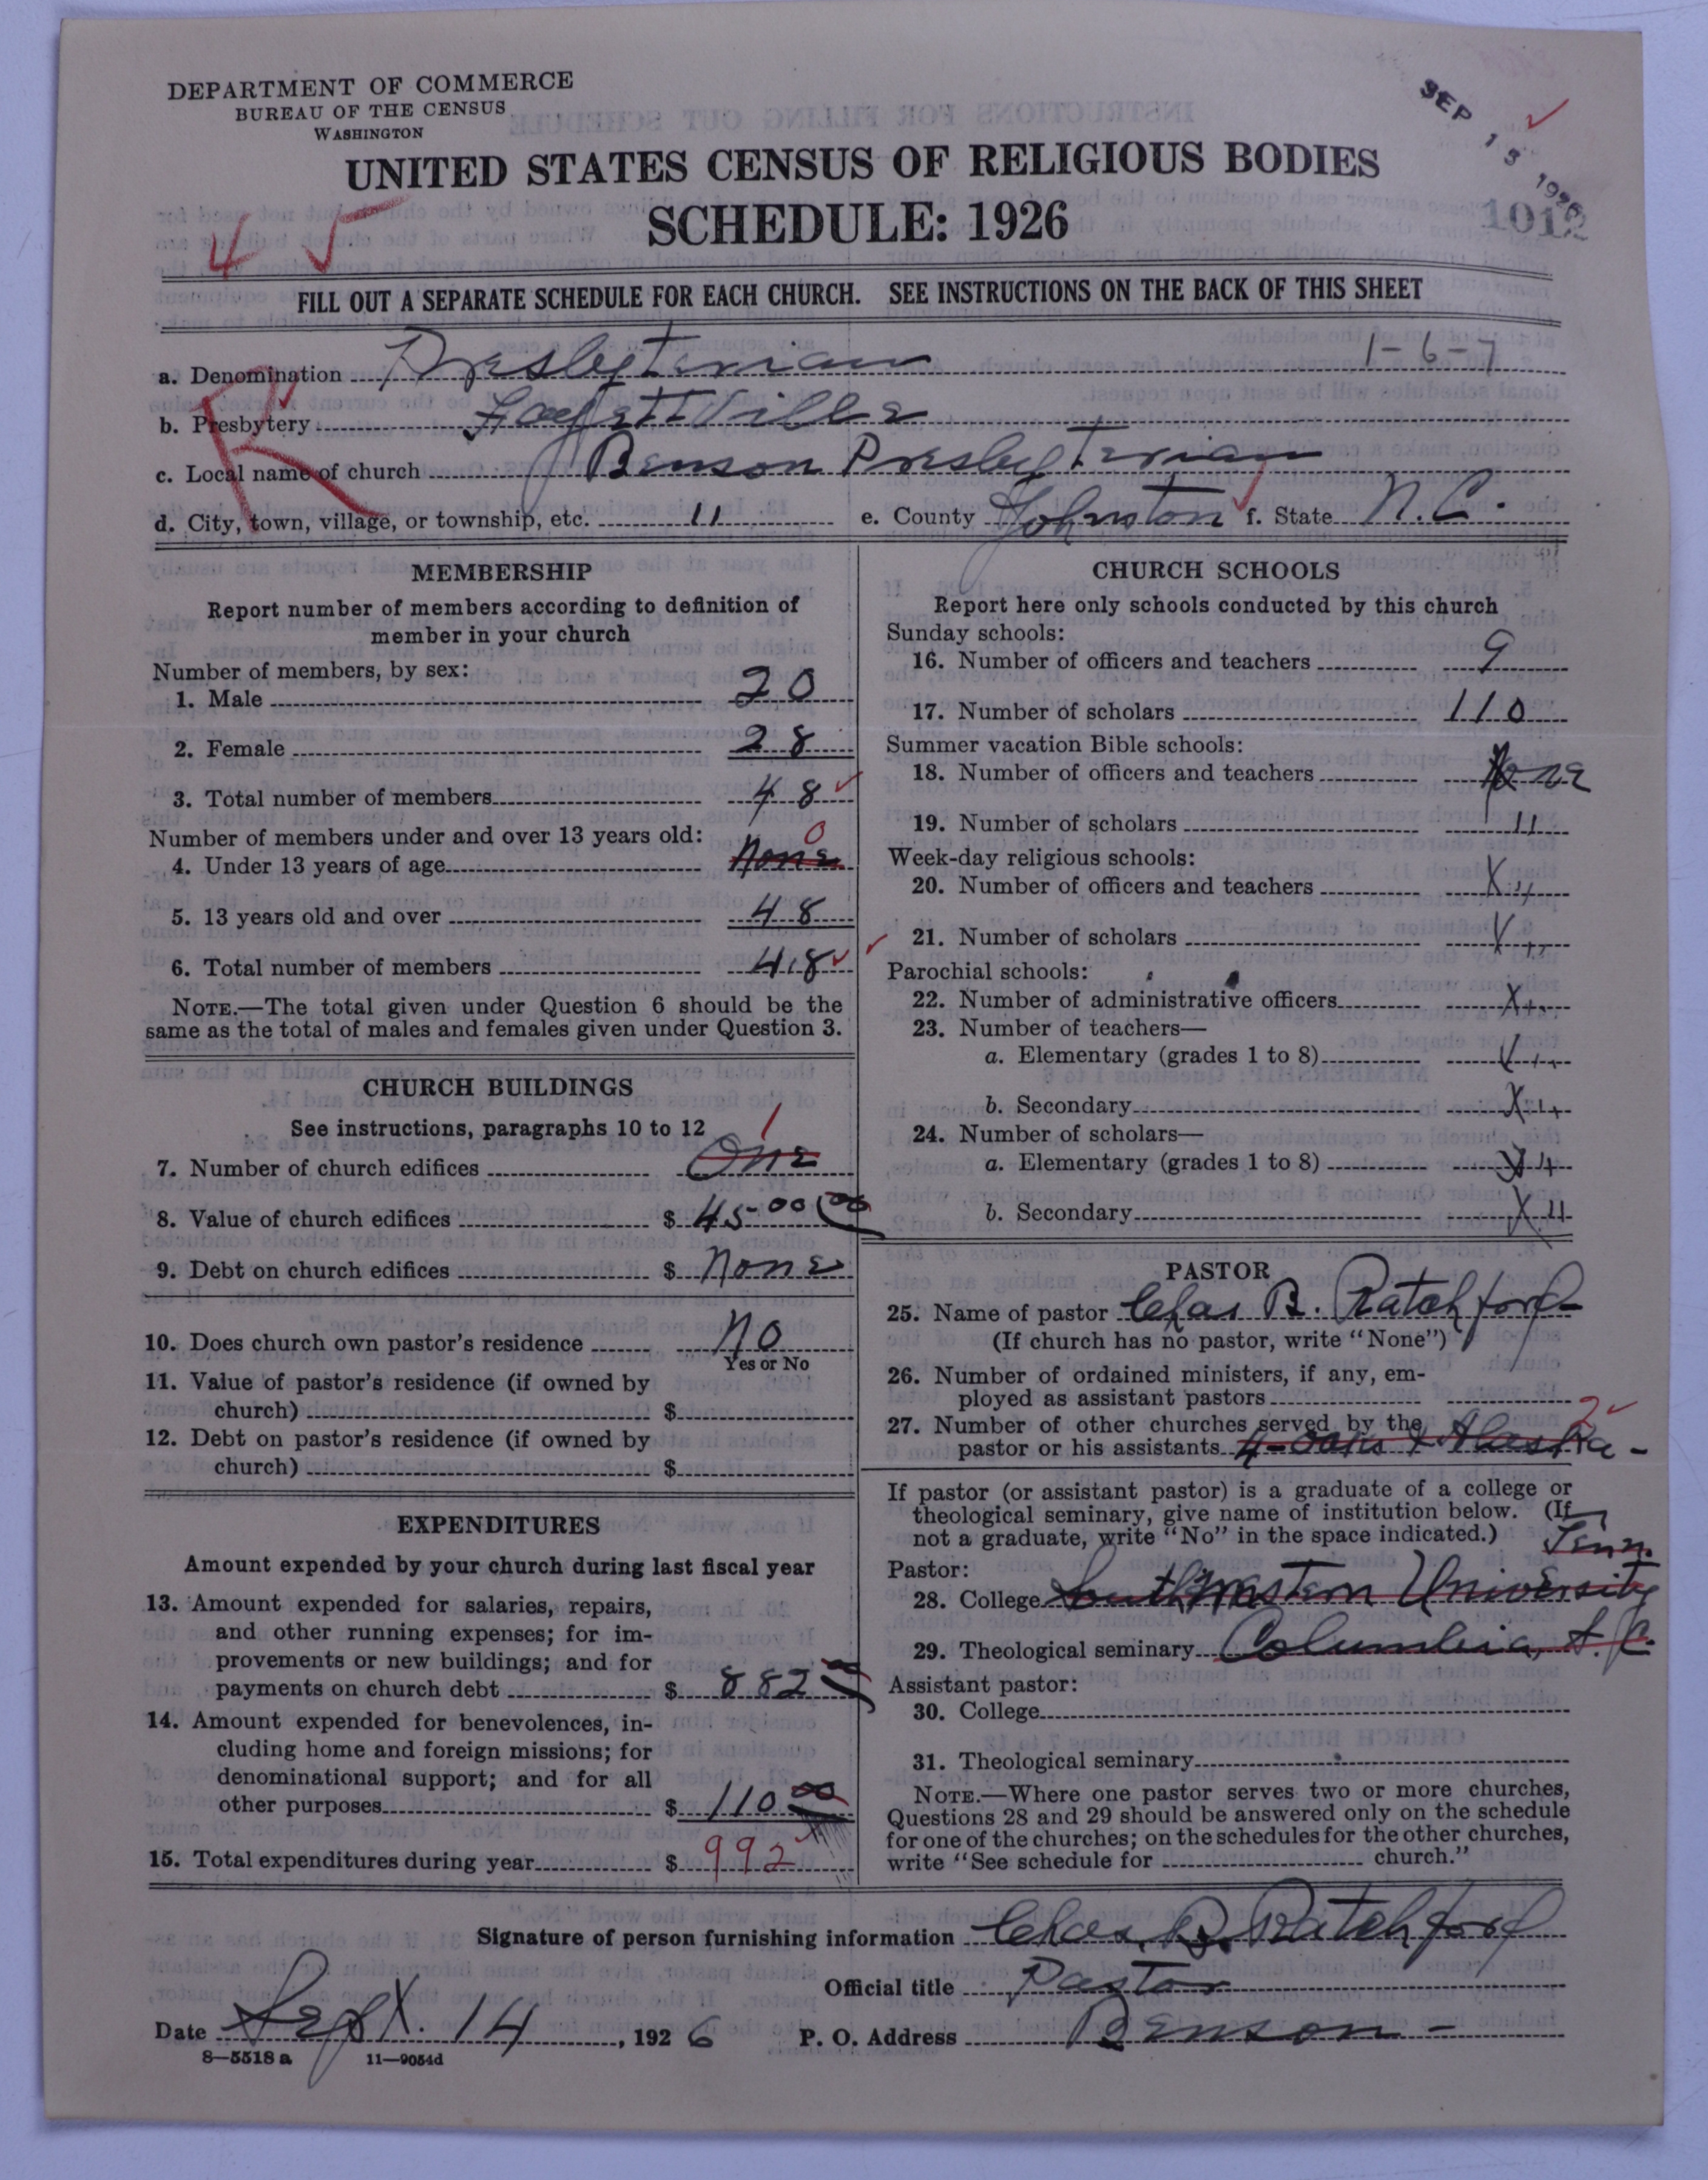 DEPARTMENT OF COMMERCE
BUREAU OF THE CENSUS
WASHINGTON
SEP 15 1926
1012
UNITED STATES CENSUS OF RELIGIOUS BODIES
SCHEDULE: 1926
4 5
FILL OUT A SEPARATE SCHEDULE FOR EACH CHURCH. SEE INSTRUCTIONS ON THE BACK OF THIS SHEET
1-6-7
a. Denomination Presbyterian
b. Presbytery Fayettville
R
c. Local name of church Benson Presbyterian
d. City, town, village, or township, etc. " e. County Johnston f. State N.C.
MEMBERSHIP
Report number of members according to definition of
member in your church
Number of members, by sex:
1. Male 20
2. Female 28
3. Total number of members 48
Number of members under and over 13 years old: 0
4. Under 13 years of age None
5. 13 years old and over 48
6. Total number of members 48
NOTE.—The total given under Question 6 should be the
same as the total of males and females given under Question 3.
CHURCH BUILDINGS
See instructions, paragraphs 10 to 12 1
7. Number of church edifices One
8. Value of church edifices $ 4500 00
9. Debt on church edifices $ None
10. Does church own pastor's residence No
Yes or No
11. Value of pastor's residence (if owned by
church) $
12. Debt on pastor's residence (if owned by
church) $
EXPENDITURES
Amount expended by your church during last fiscal year
13. Amount expended for salaries, repairs,
and other running expenses; for im-
provements or new buildings; and for
payments on church debt $ 882 00
14. Amount expended for benevolences, in-
cluding home and foreign missions; for
denominational support; and for all
other purposes $ 110 00
15. Total expenditures during year $ 992
CHURCH SCHOOLS
Report here only schools conducted by this church
Sunday schools:
16. Number of officers and teachers 9
17. Number of scholars 110
Summer vacation Bible schools:
18. Number of officers and teachers None
19. Number of scholars "
Week-day religious schools:
20. Number of officers and teachers X "
21. Number of scholars X "
Parochial schools:
22. Number of administrative officers X "
23. Number of teachers—
a. Elementary (grades 1 to 8) X "
b. Secondary X "
24. Number of scholars—
a. Elementary (grades 1 to 8) X "
b. Secondary X "
PASTOR
25. Name of pastor Chas B. Ratchford
(If church has no pastor, write "None")
26. Number of ordained ministers, if any, em-
ployed as assistant pastors
27. Number of other churches served by the 2
pastor or his assistants 4-oaks &
If pastor (or assistant pastor) is a graduate of a college or
theological seminary, give name of institution below. (If
not a graduate, write "No" in the space indicated.)
Tenn.
Pastor:
28. College Southwestern University
29. Theological seminary Columbia, S.C.
Assistant pastor:
30. College
31. Theological seminary
NOTE.—Where one pastor serves two or more churches,
Questions 28 and 29 should be answered only on the schedule
for one of the churches; on the schedules for the other churches,
write "See schedule for church."
Signature of person furnishing information Chas. B. Ratchford
Official title Pastor
Date Sept. 14, 1926 P. O. Address Benson -
8—5518 a 11—9054d